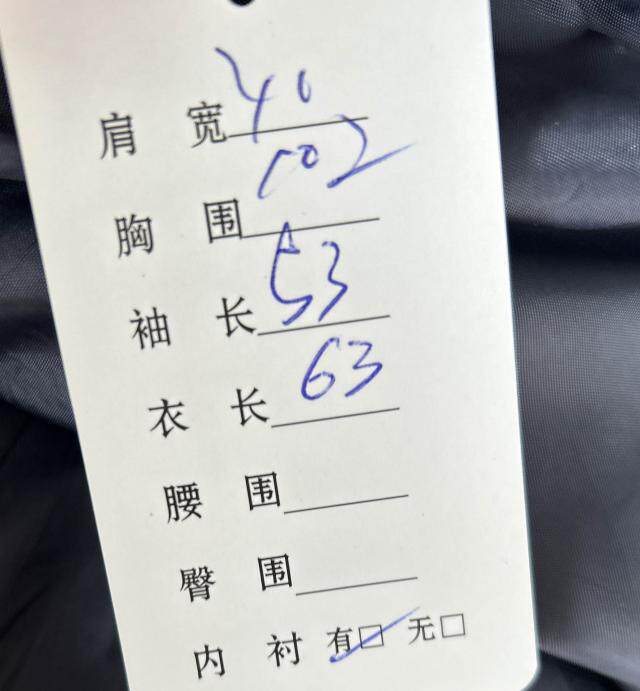 肩 宽 40
胸 围 102
袖 长 53
衣 长 63
腰 围
臀 围
内 衬 有☑ 无☐